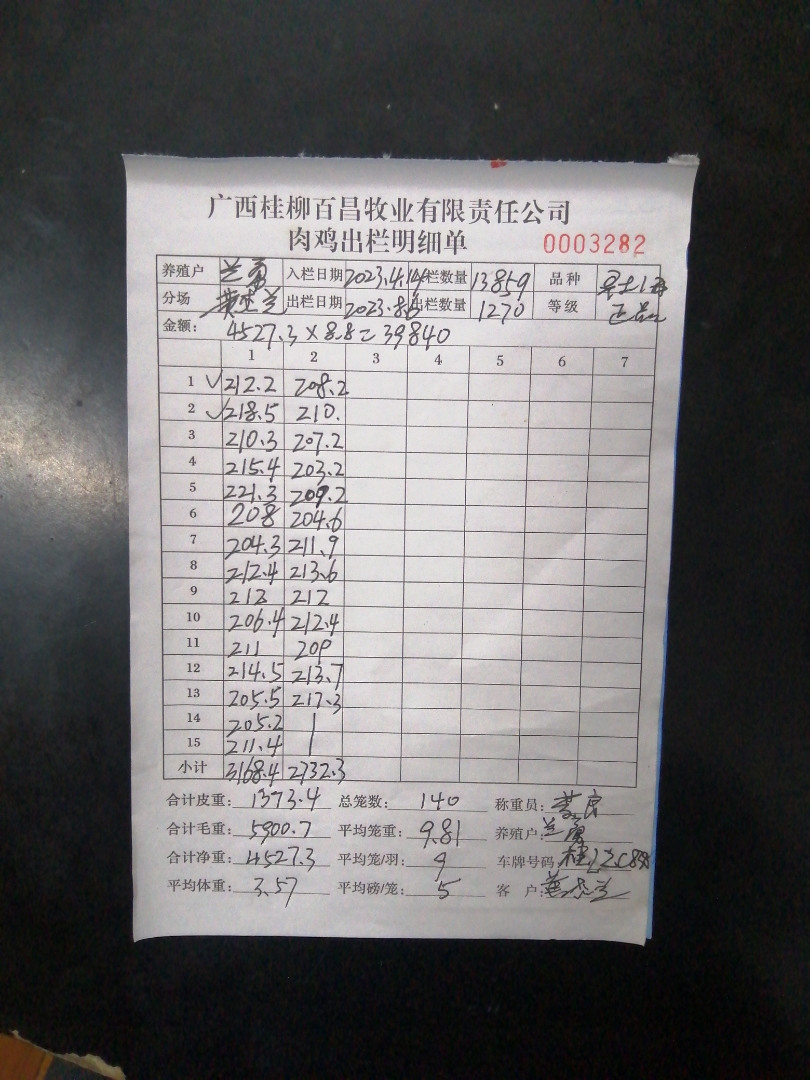 广西桂柳百昌牧业有限责任公司
肉鸡出栏明细单 0003282
养殖户 兰勇 入栏日期 2023.4.14 栏数量 13859 品种
分场 出栏日期 2023.8.6 出栏数量 1270 等级 正品
金额: 4527.3×8.8=39840
1 2 3 4 5 6 7
1 √212.2 208.2
2 √218.5 210.
3 210.3 207.2
4 215.4 203.2
5 221.3 209.2
6 208 204.6
7 204.3 211.9
8 212.4 213.6
9 212 212
10 206.4 212.4
11 211 209
12 214.5 213.7
13 205.5 217.3
14 205.2 |
15 211.4 |
小计 3168.4 2732.3
合计皮重: 1373.4 总笼数: 140 称重员:
合计毛重: 5900.7 平均笼重: 9.81 养殖户: 兰勇
合计净重: 4527.3 平均笼/羽: 9 车牌号码:
平均体重: 3.57 平均磅/笼: 5 客户: